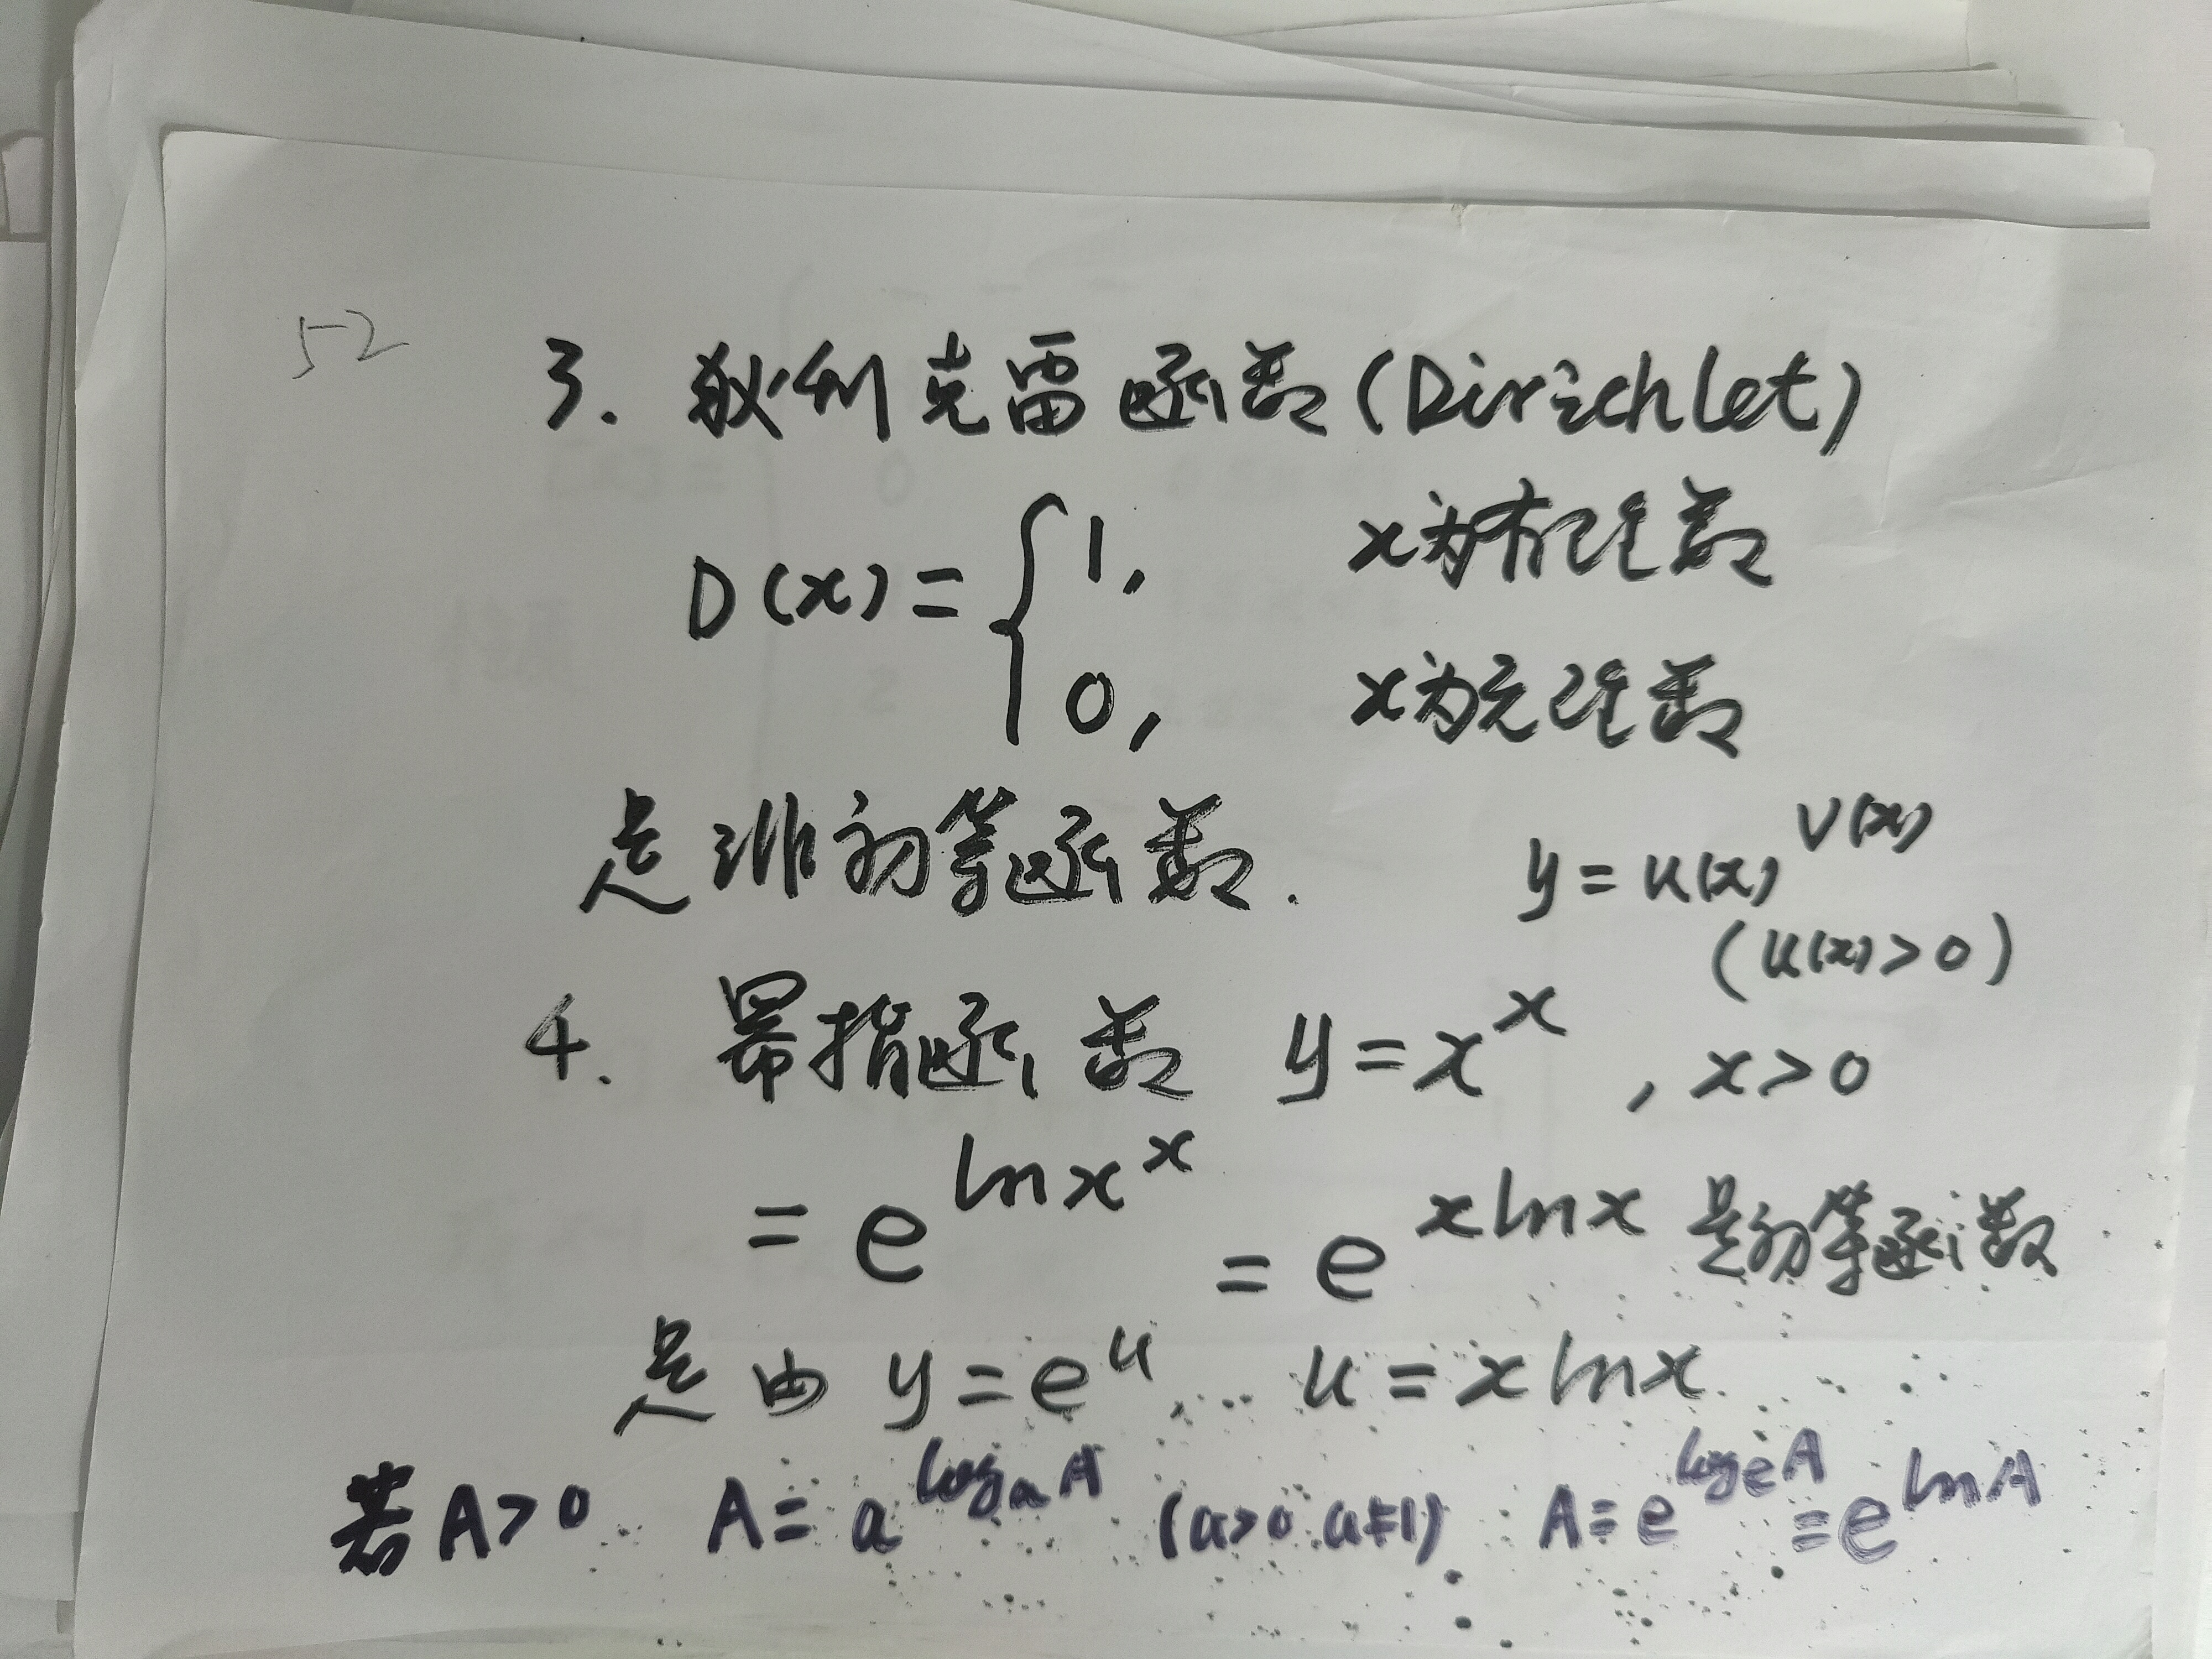 52
3. 狄利克雷函数(Dirichlet)
D(x) = { 1, x为有理数
0, x为无理数
是非初等函数.
y = u(x)^{v(x)}
(u(x)>0)
4. 幂指函数 y = x^x , x>0
= e^{ln x^x} = e^{x ln x} 是初等函数
是由 y = e^u ... u = x ln x.
若A>0 A = a^{log_a A} (a>0 a≠1) A = e^{log_e A} = e^{ln A}